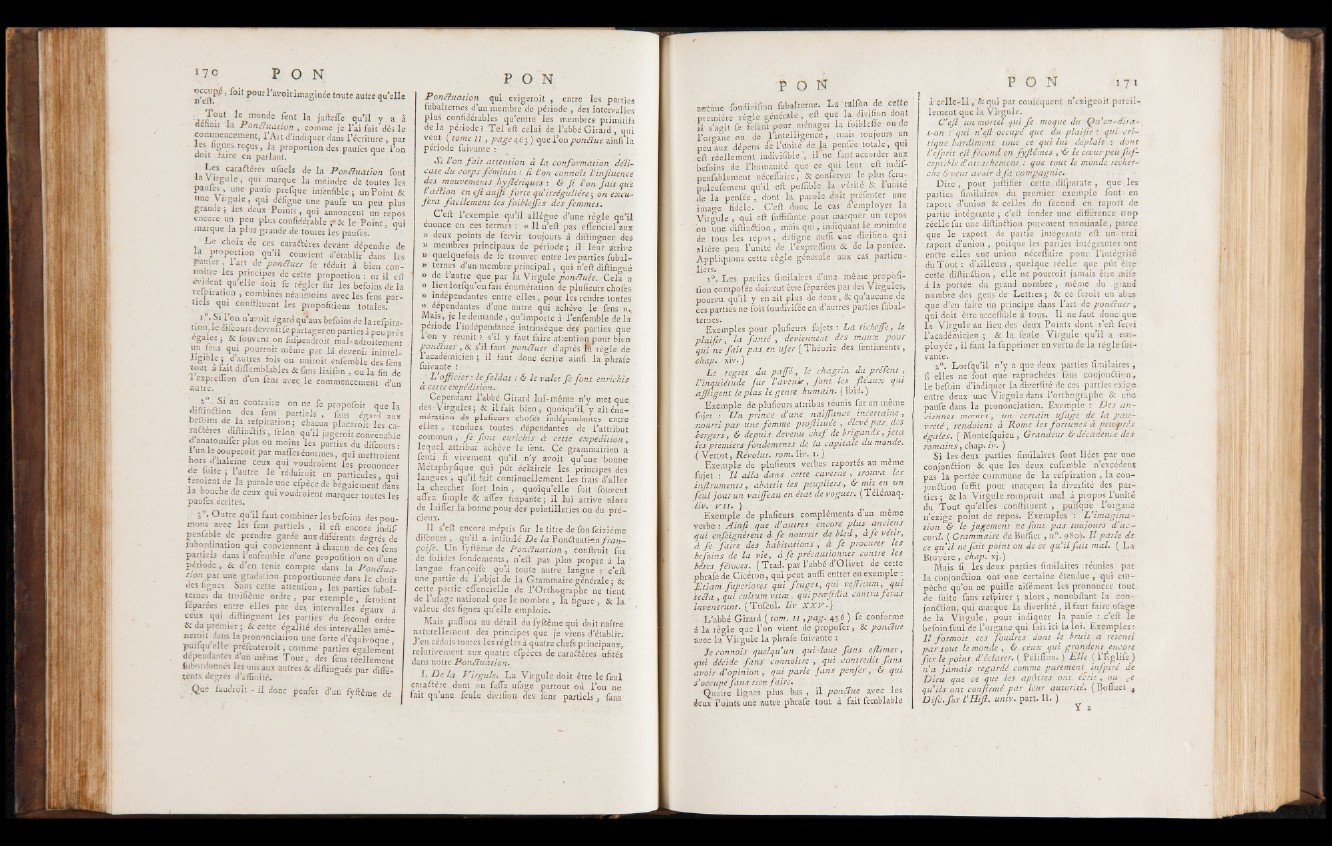 170 P O N
occupé, soit pour l'avoir imaginée toute autre qu'elle
n'est.
Tout le monde sent la justesse qu'il y a à
définir la Ponctuation, comme je l'ai fait dès le
commencement, l'Art d'indiquer dans l'écriture, par
les signes reçus, la proportion des pauses que l'on
doit faire en parlant.
Les caractères usuels de la Ponctuation sont
la Virgule, qui marque la moindre de toutes les
pauses, une pause presque insensible; un Point &
une Virgule, qui désigne une pause un peu plus
grande; les deux Points, qui annoncent un repos
encore un peu plus considérable; & le Point, qui
marque la plus grande de toutes les pauses.
Le choix de ces caractères devant dépendre de
la proportion qu'il convient d'établir dans les
pauses, l'art de ponctuer se réduit à bien con-
noître les principes de cette proportion: or il est
évident qu'elle doit se régler sur les besoins de la
respiration, combinés néanmoins avec les sens par-
tiels qui constituent les propositions totales.
1°. Si l'on n'avoit égard qu'aux besoins de la respira-
tion, le discours devroit se partager en parties à peu près
égales; & souvent on suspendroit mal-adroitement
un sens qui pourroit même par là devenir inintel-
ligible; d'autres fois on uniroit ensemble des sens
tout à fait dissemblables & sans liaison, ou la fin de
l'expression d'un sens avec le commencement d'un
autre.
2°. Si au contraire on ne se proposoit que la
distinction des sens partiels, sans égard aux
besoins de la respiration; chacun placeroit les ca-
ractères distinctifs, selon qu'il jugeroit convenable
d'anatomiser plus ou moins les parties du discours:
l'un le couperoit par masses énormes, qui mettroient
hors d'haleine ceux qui voudroient les prononcer
de suite; l'autre le réduiroit en particules, qui
feroient de la parole une espèce de bégaiement dans
la bouche de ceux qui voudroient marquer toutes les
pauses écrites.
3°. Outre qu'il faut combiner les besoins des pou-
mons avec les sens partiels, il est encore indis-
pensable de prendre garde aux différents degrés de
subordination qui conviennent à chacun de ces sens
partiels dans l'ensemble d'une proposition ou d'une
période, & d'en tenir compte dans la Ponctua-
tion par une gradation proportionnée dans le choix
des signes. Sans cette attention, les parties subal-
ternes du troisième ordre, par exemple, seroient
séparées entre elles par des intervalles égaux à
ceux qui distinguent les parties du second ordre
& du premier; & cette égalité des intervalles amè-
neroit dans la prononciation une sorte d'équivoque,
puisqu'elle présenteroit, comme parties également
dépendantes d'un même Tout, des sens réellement
subordonnés les uns aux autres & distingués par diffé-
rents degrés d'affinité.
Que faudroit-il donc penser d'un système de
P O N
Ponctuation qui exigeroit, entre les parties
subalternes d'un membre de période, des intervalles
plus considérables qu'entre les membres primitifs
de la période? Tel est celui de l'abbé Girard, qui
veut (tome II, page 463) que l'on ponctue ainsi la
période suivante:
Si l'on fait attention à la conformation déli-
cate du corps féminin: si l'on connoît l'influence
des mouvements hystériques: & si l'on sait que
l'action en est aussi forte qu'irrégulière; on excu-
sera facilement les foiblesses des femmes.
C'est l'exemple qu'il allègue d'une règle qu'il
énonce en ces termes: » Il n'est pas essenciel aux
» deux points de servir toujours à distinguer des
» membres principaux de période; il leur arrive
» quelquefois de se trouver entre les parties subal-
» ternes d'un membre principal, qui n'est distingué
» de l'autre que par la Virgule ponctuée. Cela a
» lieu lorsqu'on fait énumération de plusieurs choses
» indépendantes entre elles, pour les rendre toutes
» dépendantes d'une autre qui achève le sens ».
Mais, je le demande, qu'importe à l'ensemble de la
période l'indépendance intrinsèque des parties que
l'on y réunit? s'il y faut faire attention pour bien
ponctuer, & s'il faut ponctuer d'après la règle de
l'académicien; il faut donc écrire ainsi la phrase
suivante:
L'officier: le soldat: & le valet se sont enrichis
à cette expédition.
Cependant l'abbé Girard lui-même n'y met que
des Virgules; & il fait bien, quoiqu'il y ait énu-
mération de plusieurs choses indépendantes entre
elles, rendues toutes dépendantes de l'attribut
commun, se sont enrichis à cette expédition,
lequel attribut achève le sens. Ce grammairien a
senti si vivement qu'il n'y avoit qu'une bonne
Métaphysique qui pût éclaircir les principes des
langues, qu'il fait continuellement les frais d'aller
la chercher fort loin, quoiqu'elle soit souvent
assez simple & assez frapante; il lui arrive alors
de laisser la bonne pour des pointilleries ou du pré-
cieux.
Il s'est encore mépris sur le titre de son seizième
discours, qu'il a intitulé De la Ponctuation fran-
çoise. Un système de Ponctuation, construit sur
de solides fondements, n'est pas plus propre à la
langue françoise qu'à toute autre langue: c'est
une partie de l'objet de la Grammaire générale; &
cette partie essencielle de l'Orthographe ne tient
de l'usage national que le nombre, la figure, & la
valeur des signes qu'elle emploie.
Mais passons au détail du système qui doit naître
naturellement des principes que je viens d'établir.
J'en réduis toutes les règles à quatre chefs principaux,
relativement aux quatre espèces de caractères usités
dans notre Ponctuation.
I. De la Virgule. La Virgule doit être le seul
caractère dont on fasse usage partout où l'on ne
fait qu'une seule division des sens partiels, sans
P O N
aucune soudivision subalterne. La raison de cette
première règle générale, est que la division dont
il s'agit se fesant pour ménager la foiblesse ou de
l'organe ou de l'intelligence, mais toujours un
peu aux dépens de l'unité de la pensée totale, qui
est réellement indivisible, il ne faut accorder aux
besoins de l'humanité que ce qui leur est indis-
pensablement nécessaire, & conserver le plus scru-
puleusement qu'il est possible la vérité & l'unité
de la pensée, dont la parole doit présenter une
image fidèle. C'est donc le cas d'employer la
Virgule, qui est suffisante pour marquer un repos
ou une distinction, mais qui, indiquant le moindre
de tous les repos, désigne aussi une division qui
altère peu l'unité de l'expression & de la pensée.
Appliquons cette règle générale aux cas particu-
liers.
1°. Les parties similaires d'une même proposi-
tion composée doivent être séparées par des Virgules,
pourvu qu'il y en ait plus de deux, & qu'aucune de
ces parties ne soit soudivisée en d'autres parties subal-
ternes.
Exemples pour plusieurs sujets: La richesse, le
plaisir, la santé, deviennent des maux pour
qui ne sait pas en user (Théorie des sentiments,
chap. xiv.)
Le regret du passé, le chagrin du présent,
l'inquiétude sur l'avenir, sont les fléaux qui
affligent le plus le genre humain. (Ibid.)
Exemple de plusieurs attributs réunis sur un même
sujet: Un prince d'une naissance incertaine,
nourri par une femme prostituée, élevé par des
bergers, & depuis devenu chef de brigands, jeta
les premiers fondements de la capitale du monde.
(Vertot, Révolut. rom. liv. 1.)
Exemple de plusieurs verbes raportés au même
sujet: Il alla dans cette caverne, trouva les
instruments, abattit les peupliers, & mit en un
seul jour un vaisseau en état de voguer. (Télémaq.
liv. VII.)
Exemple de plusieurs compléments d'un même
verbe: Ainsi que d'autres encore plus anciens
qui enseignèrent à se nourrir de bled, à se vêtir,
à se faire des habitations, à se procurer les
besoins de la vie, à se précautionner contre les
bêtes féroces. (Trad. par l'abbé d'Olivet de cette
phrase de Cicéron, qui peut aussi entrer en exemple:
Etiam superiores qui fruges, qui vestitum, qui
tecta, qui cultum vitæ, qui præsidia contra feras
invenerunt. (Tuscul. liv XXV.)
L'abbé Girard (tom. II, pag. 456) se conforme
à la règle que l'on vient de proposer, & ponctue
avec la Virgule la phrase suivante:
Je connois quelqu'un qui loue sans estimer,
qui décide sans connoître, qui contredit sans
avoir d'opinion, qui parle sans penser, & qui
s'occupe sans rien faire.
Quatre lignes plus bas, il ponctue avec les
deux Points une autre phrase tout à fait semblable
P O N 171
à celle-là, & qui par conséquent n'exigeoit pareil-
lement que la Virgule.
C'est un mortel qui se moque du Qu'en-dira-
t-on: qui n'est occupé que du plaisir: qui cri-
tique hardiment tout ce qui lui déplaît: dont
l'esprit est fécond en systêmes, & le cœur peu sus-
ceptible d'attachement: que tout le monde recher-
che & veut avoir à sa compagnie.
Dire, pour justifier cette disparate, que les
parties similaires du premier exemple sont en
raport d'union & celles du second en raport de
partie intégrante; c'est fonder une différence trop
réelle sur une distinction purement nominale; parce
que le raport de partie intégrante est un vrai
raport d'union, puisque les parties intégrantes ont
entre elles une union nécessaire pour l'intégrité
du Tout: d'ailleurs, quelque réelle que pût être
cette distinction, elle ne pourroit jamais être mise
à la portée du grand nombre, même du grand
nombre des gens de Lettres; & ce seroit un abus
que d'en faire un principe dans l'art de ponctuer,
qui doit être accessible à tous. Il ne faut donc que
la Virgule au lieu des deux Points dont s'est servi
l'académicien; & la seule Virgule qu'il a em-
ployée, il faut la supprimer en vertu de la règle sui-
vante.
2°. Lorsqu'il n'y a que deux parties similaires,
si elles ne sont que raprochées sans conjonction,
le besoin d'indiquer la diversité de ces parties exige
entre deux une Virgule dans l'orthographe & une
pause dans la prononciation. Exemple: Des an-
ciennes mœurs, un certain usage de la pau-
vreté, rendoient à Rome les fortunes à peu près
égales. (Montesquieu, Grandeur & décadence des
romains, chap. iv.)
Si les deux parties similaires sont liées par une
conjonction & que les deux ensemble n'excèdent
pas la portée commune de la respiration, la con-
jonction suffit pour marquer la diversité des par-
ties; & la Virgule romproit mal à propos l'unité
du Tout qu'elles constituent, puisque l'organe
n'exige point de repos. Exemples: L'imagina-
tion & le jugement ne sont pas toujours d'ac-
cord. (Grammaire de Buffier, n°. 980). Il parle de
ce qu'il ne sait point ou de ce qu'il sait mal. (La
Bruyère, chap. xj.)
Mais si les deux parties similaires réunies par
la conjonction ont une certaine étendue, qui em-
pêche qu'on ne puisse aisément les prononcer tout
de suite sans respirer; alors, nonobstant la con-
jonction, qui marque la diversité, il faut faire usage
de la Virgule, pour indiquer la pause: c'est le
besoin seul de l'organe qui fait ici la loi. Exemples:
Il formoit ces foudres dont le bruit a retenti
par tout le monde, & ceux qui grondent encore
sur le point d'éclater. (Pélisson.) Elle (l'Église)
n'a jamais regardé comme purement inspiré de
Dieu que ce que les apôtres ont écrit, ou ce
qu'ils ont confirmé par leur autorité. (Bossuet,
Disc. sur l'Hist. univ. part. II.)
Y 2